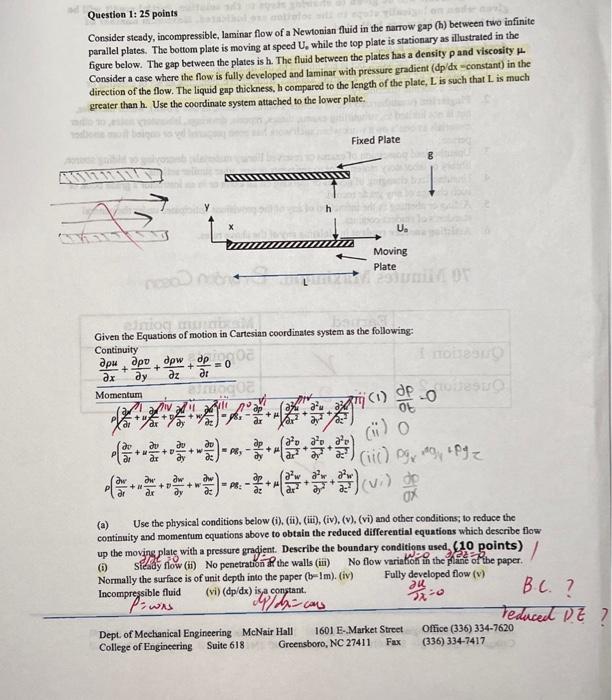 Question 1: 25 points
Consider steady, incompressible, laminar flow of a Newtonian fluid in the narrow gap (h) between two infinite
parallel plates. The bottom plate is moving at speed Uₒ while the top plate is stationary as illustrated in the
figure below. The gap between the plates is h. The fluid between the plates has a density ρ and viscosity μ.
Consider a case where the flow is fully developed and laminar with pressure gradient (dp/dx =constant) in the
direction of the flow. The liquid gap thickness, h compared to the length of the plate, L is such that L is much
greater than h. Use the coordinate system attached to the lower plate.
Fixed Plate
g
y
h
x
Uₒ
Moving
Plate
L
Given the Equations of motion in Cartesian coordinates system as the following:
Continuity
∂ρu/∂x + ∂ρv/∂y + ∂ρw/∂z + ∂ρ/∂t = 0
Momentum
ρ(∂u/∂t + u ∂u/∂x + v ∂u/∂y + w ∂u/∂z) = ρgₓ - ∂p/∂x + μ(∂²u/∂x² + ∂²u/∂y² + ∂²u/∂z²) (i) ∂ρ/∂t = 0
(ii) 0
ρ(∂v/∂t + u ∂v/∂x + v ∂v/∂y + w ∂v/∂z) = ρgᵧ - ∂p/∂y + μ(∂²v/∂x² + ∂²v/∂y² + ∂²v/∂z²) (iii) ρgₓ ρgᵧ + ρg z
ρ(∂w/∂t + u ∂w/∂x + v ∂w/∂y + w ∂w/∂z) = ρg z - ∂p/∂z + μ(∂²w/∂x² + ∂²w/∂y² + ∂²w/∂z²) (vi) ∂p/∂x
(a) Use the physical conditions below (i), (ii), (iii), (iv), (v), (vi) and other conditions; to reduce the
continuity and momentum equations above to obtain the reduced differential equations which describe flow
up the moving plate with a pressure gradient. Describe the boundary conditions used. (10 points)
∂/∂t = 0 v=0 w=0 ∂/∂z = 0
(i) Steady flow (ii) No penetration at the walls (iii) No flow variation in the plane of the paper.
Normally the surface is of unit depth into the paper (b=1m). (iv) Fully developed flow (v)
∂u/∂x = 0
B.C. ?
Incompressible fluid (vi) (dp/dx) is a constant.
ρ = cons dp/dx = cons
reduced D.E ?
Dept. of Mechanical Engineering McNair Hall 1601 E-.Market Street Office (336) 334-7620
College of Engineering Suite 618 Greensboro, NC 27411 Fax (336) 334-7417